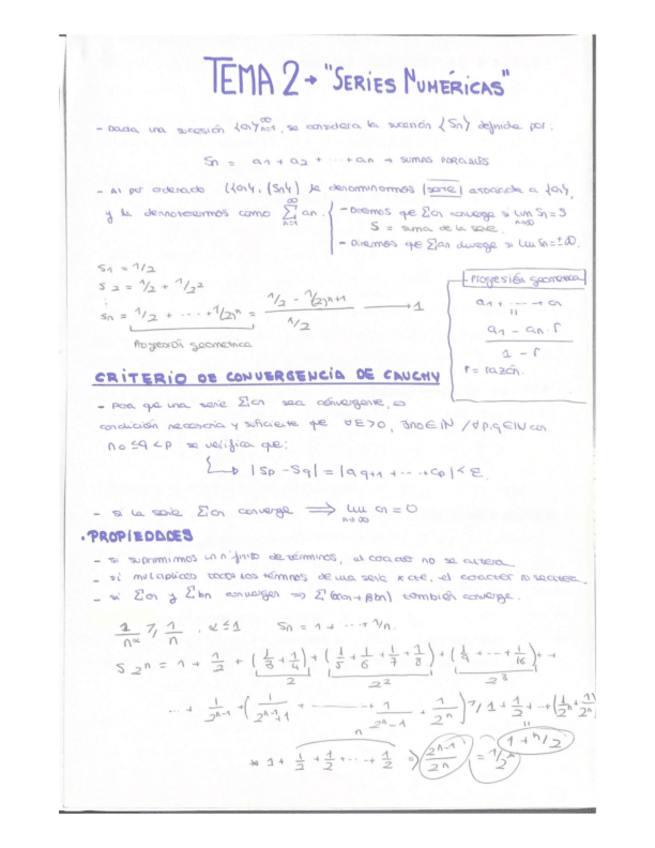 TEMA 2 → "SERIES NUMÉRICAS"
- Dada una sucesión {an}∞n=1, se considera la sucesión {Sn} definida por:
Sn = a1 + a2 + ··· + an → SUMAS PARCIALES
- Al par ordenado ({an}, {Sn}) le denominarmos serie asociada a {an},
y la denotaremos como ∞Σn=1 an.
- Diremos que Σan converge si lim n→∞ Sn = S
S = suma de la serie.
- Diremos que Σan diverge si lim Sn = ±∞.
S1 = 1/2
S2 = 1/2 + 1/2²
⋮
Sn = 1/2 + ··· + (1/2)^n = (1/2 - (1/2)^n+1) / (1/2) → 1
Progresión geométrica
Progresión geométrica
a1 + ··· + an
=
(a1 - an·r) / (1 - r)
r = razón.
CRITERIO DE CONVERGENCIA DE CAUCHY
- Para que una serie Σan sea convergente, es
condición necesaria y suficiente que ∀ε>0, ∃n0∈ℕ / ∀p,q∈ℕ con
n0 ≤ q < p se verifica que:
↳ |Sp - Sq| = |aq+1 + ··· + ap| < ε.
- si la serie Σan converge ⟹ lim n→∞ an = 0
· PROPIEDADES
- Si suprimimos un nº finito de términos, el carácter no se altera
- si todos los términos de una serie x cte, el carácter no se altera.
- si Σan y Σbn convergen ⟹ Σ(αan + βbn) también converge.
1/n^α ≥ 1/n , α ≤ 1 Sn = 1 + ··· + 1/n.
S2^n = 1 + 1/2 + (1/3 + 1/4) + (1/5 + 1/6 + 1/7 + 1/8) + (1/9 + ··· + 1/16) + ··
2 2² 2³
··· + 1/2^n-1 + (1/2^n-1+1 + ······ + 1/2^n-1 + 1/2^n) ≥ 1 + 1/2 + ·· + (1/2^n + 1/2^n)
n
1 + 1/2 + 1/2 + ··· + 1/2 ⟹ 2^n-1/2^n = 1/2
1 + n/2